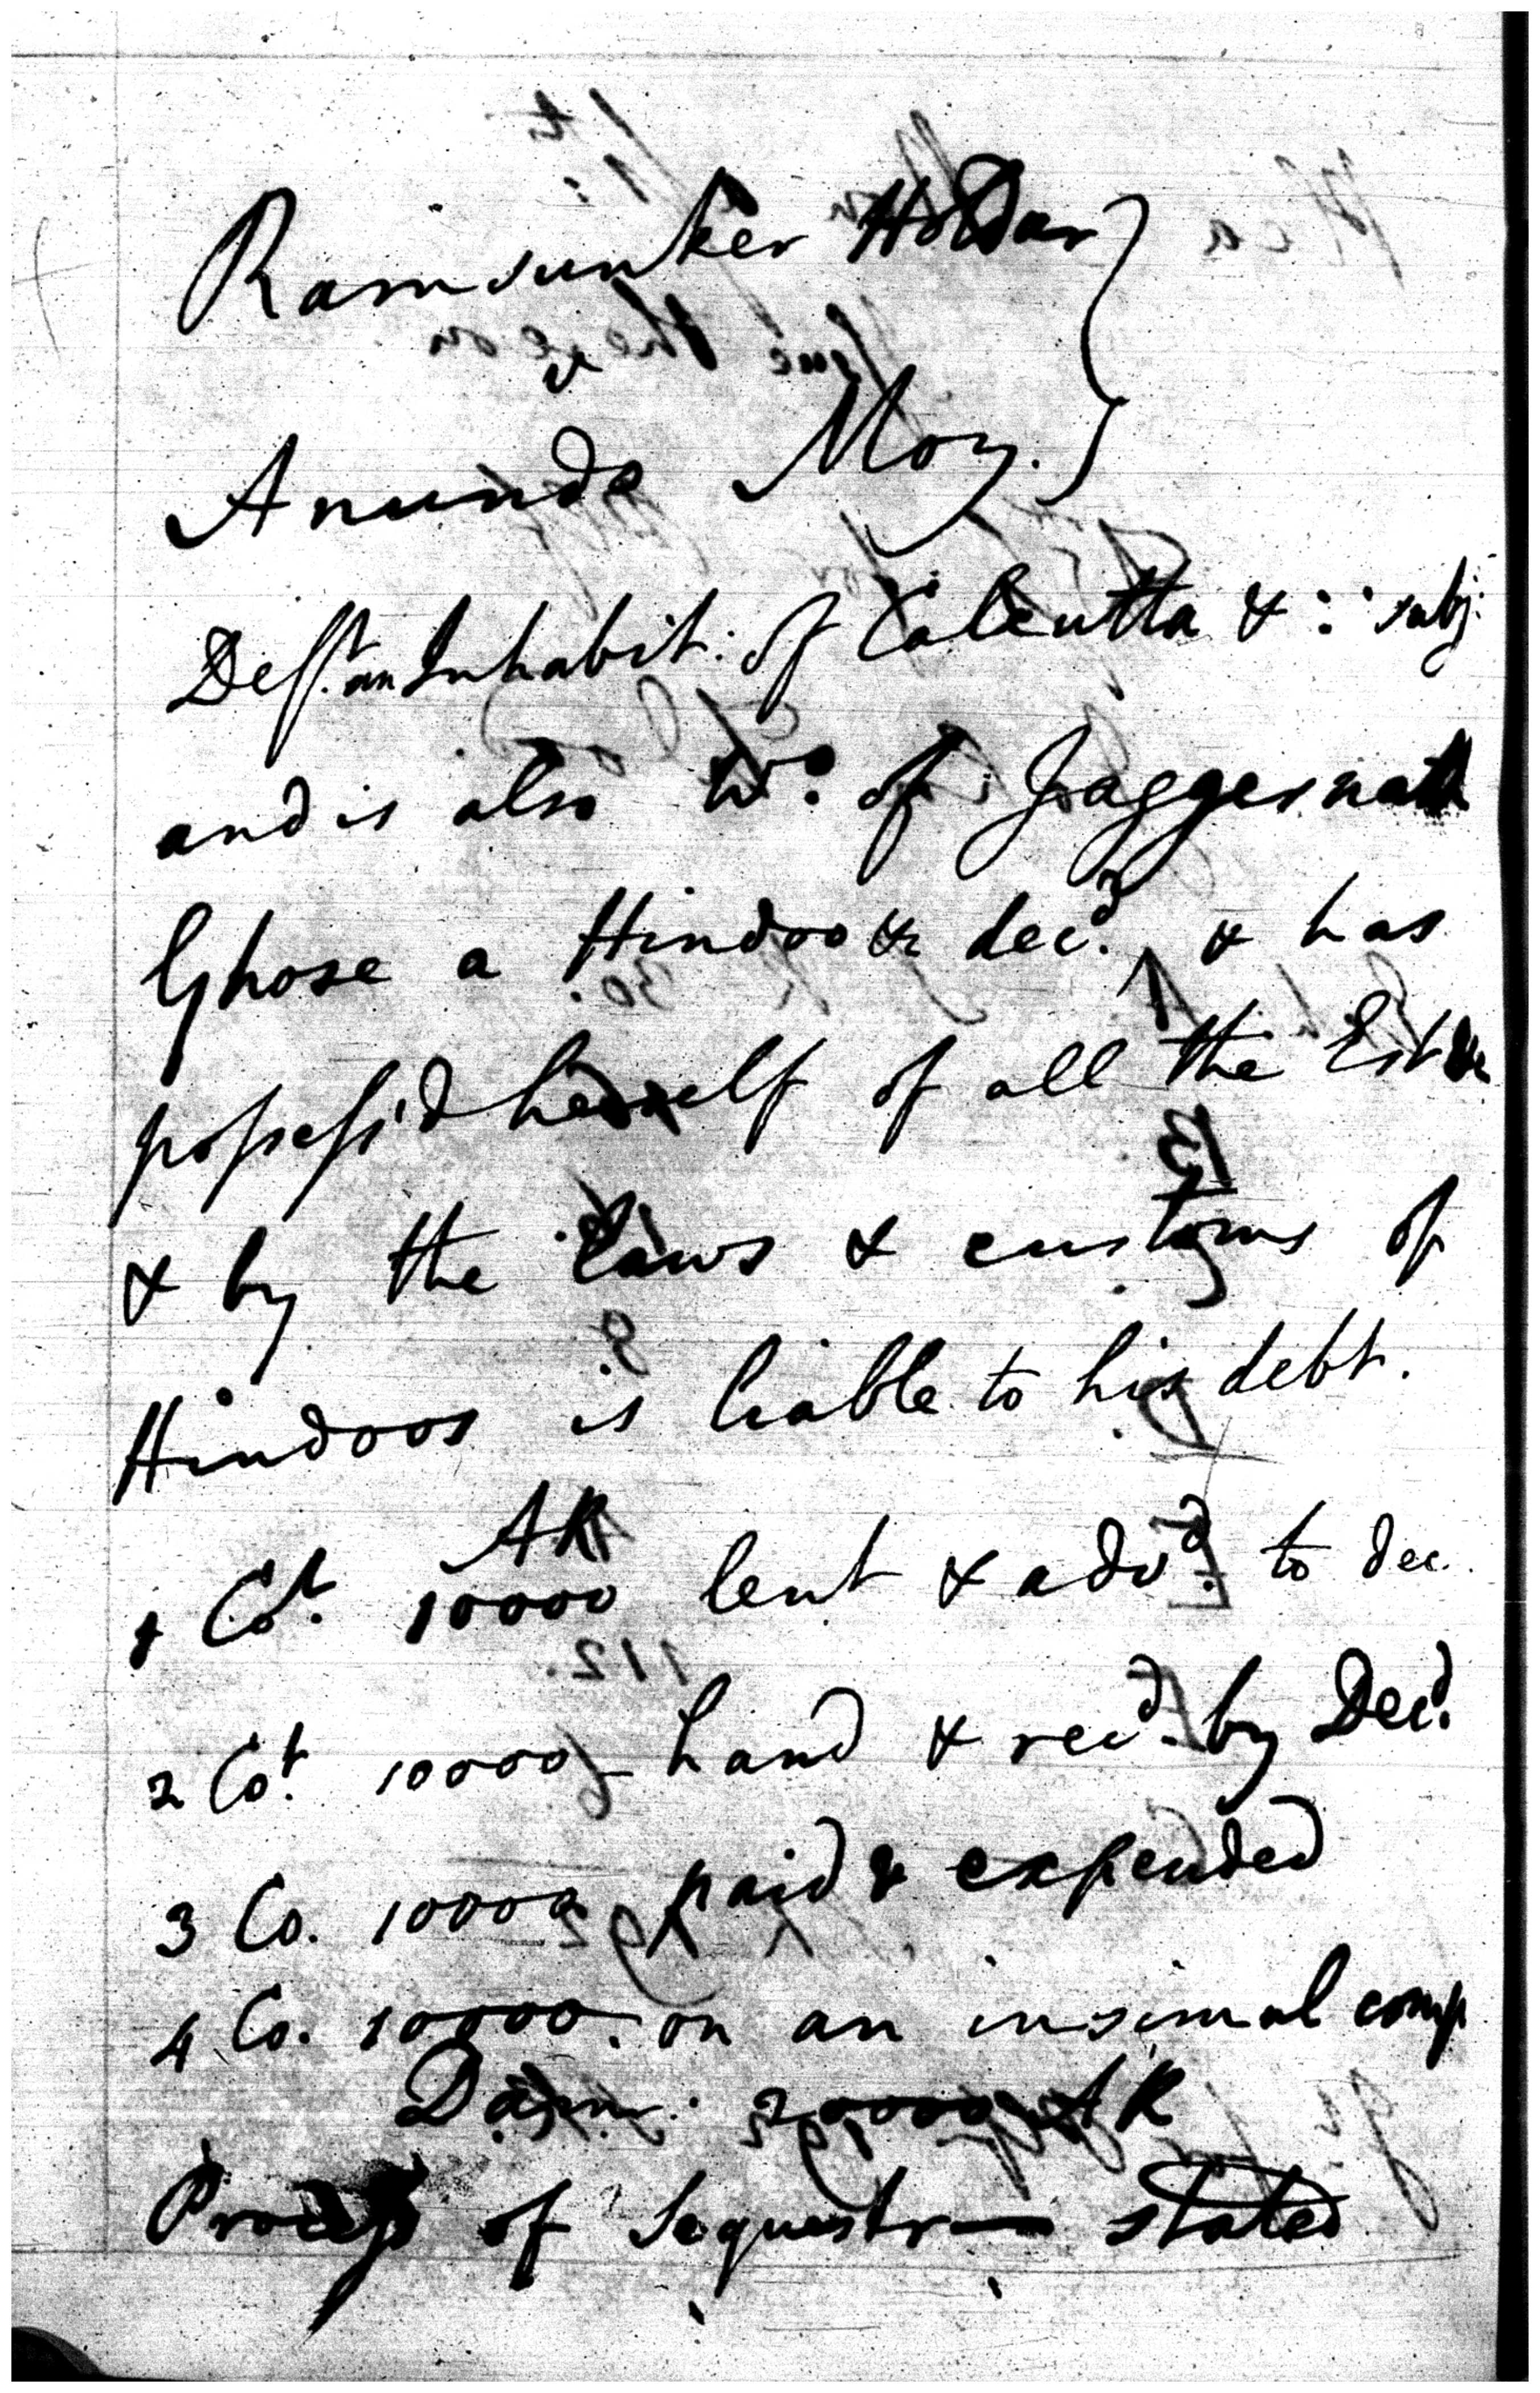 Ramsunker Holdar
v
Anundo Moy.
Deft. an Inhabit: of Calcutta & ∴ subj:
and is also Wo. of Jaggernath
Ghose a Hindoo & decd. & has
possess'd herself of all the Est &c
& by the laws & customs of
Hindoos is liable to his debt.
AR
1 Cot. 10000 lent & advd. to dec.
2 Cot. 10000 - hand & recd. by Decd.
3 Co. 10000 paid & expended
4 Co. 10000. on an insimul comp
Dam. 20000 AR
Process of Sequestr— stated